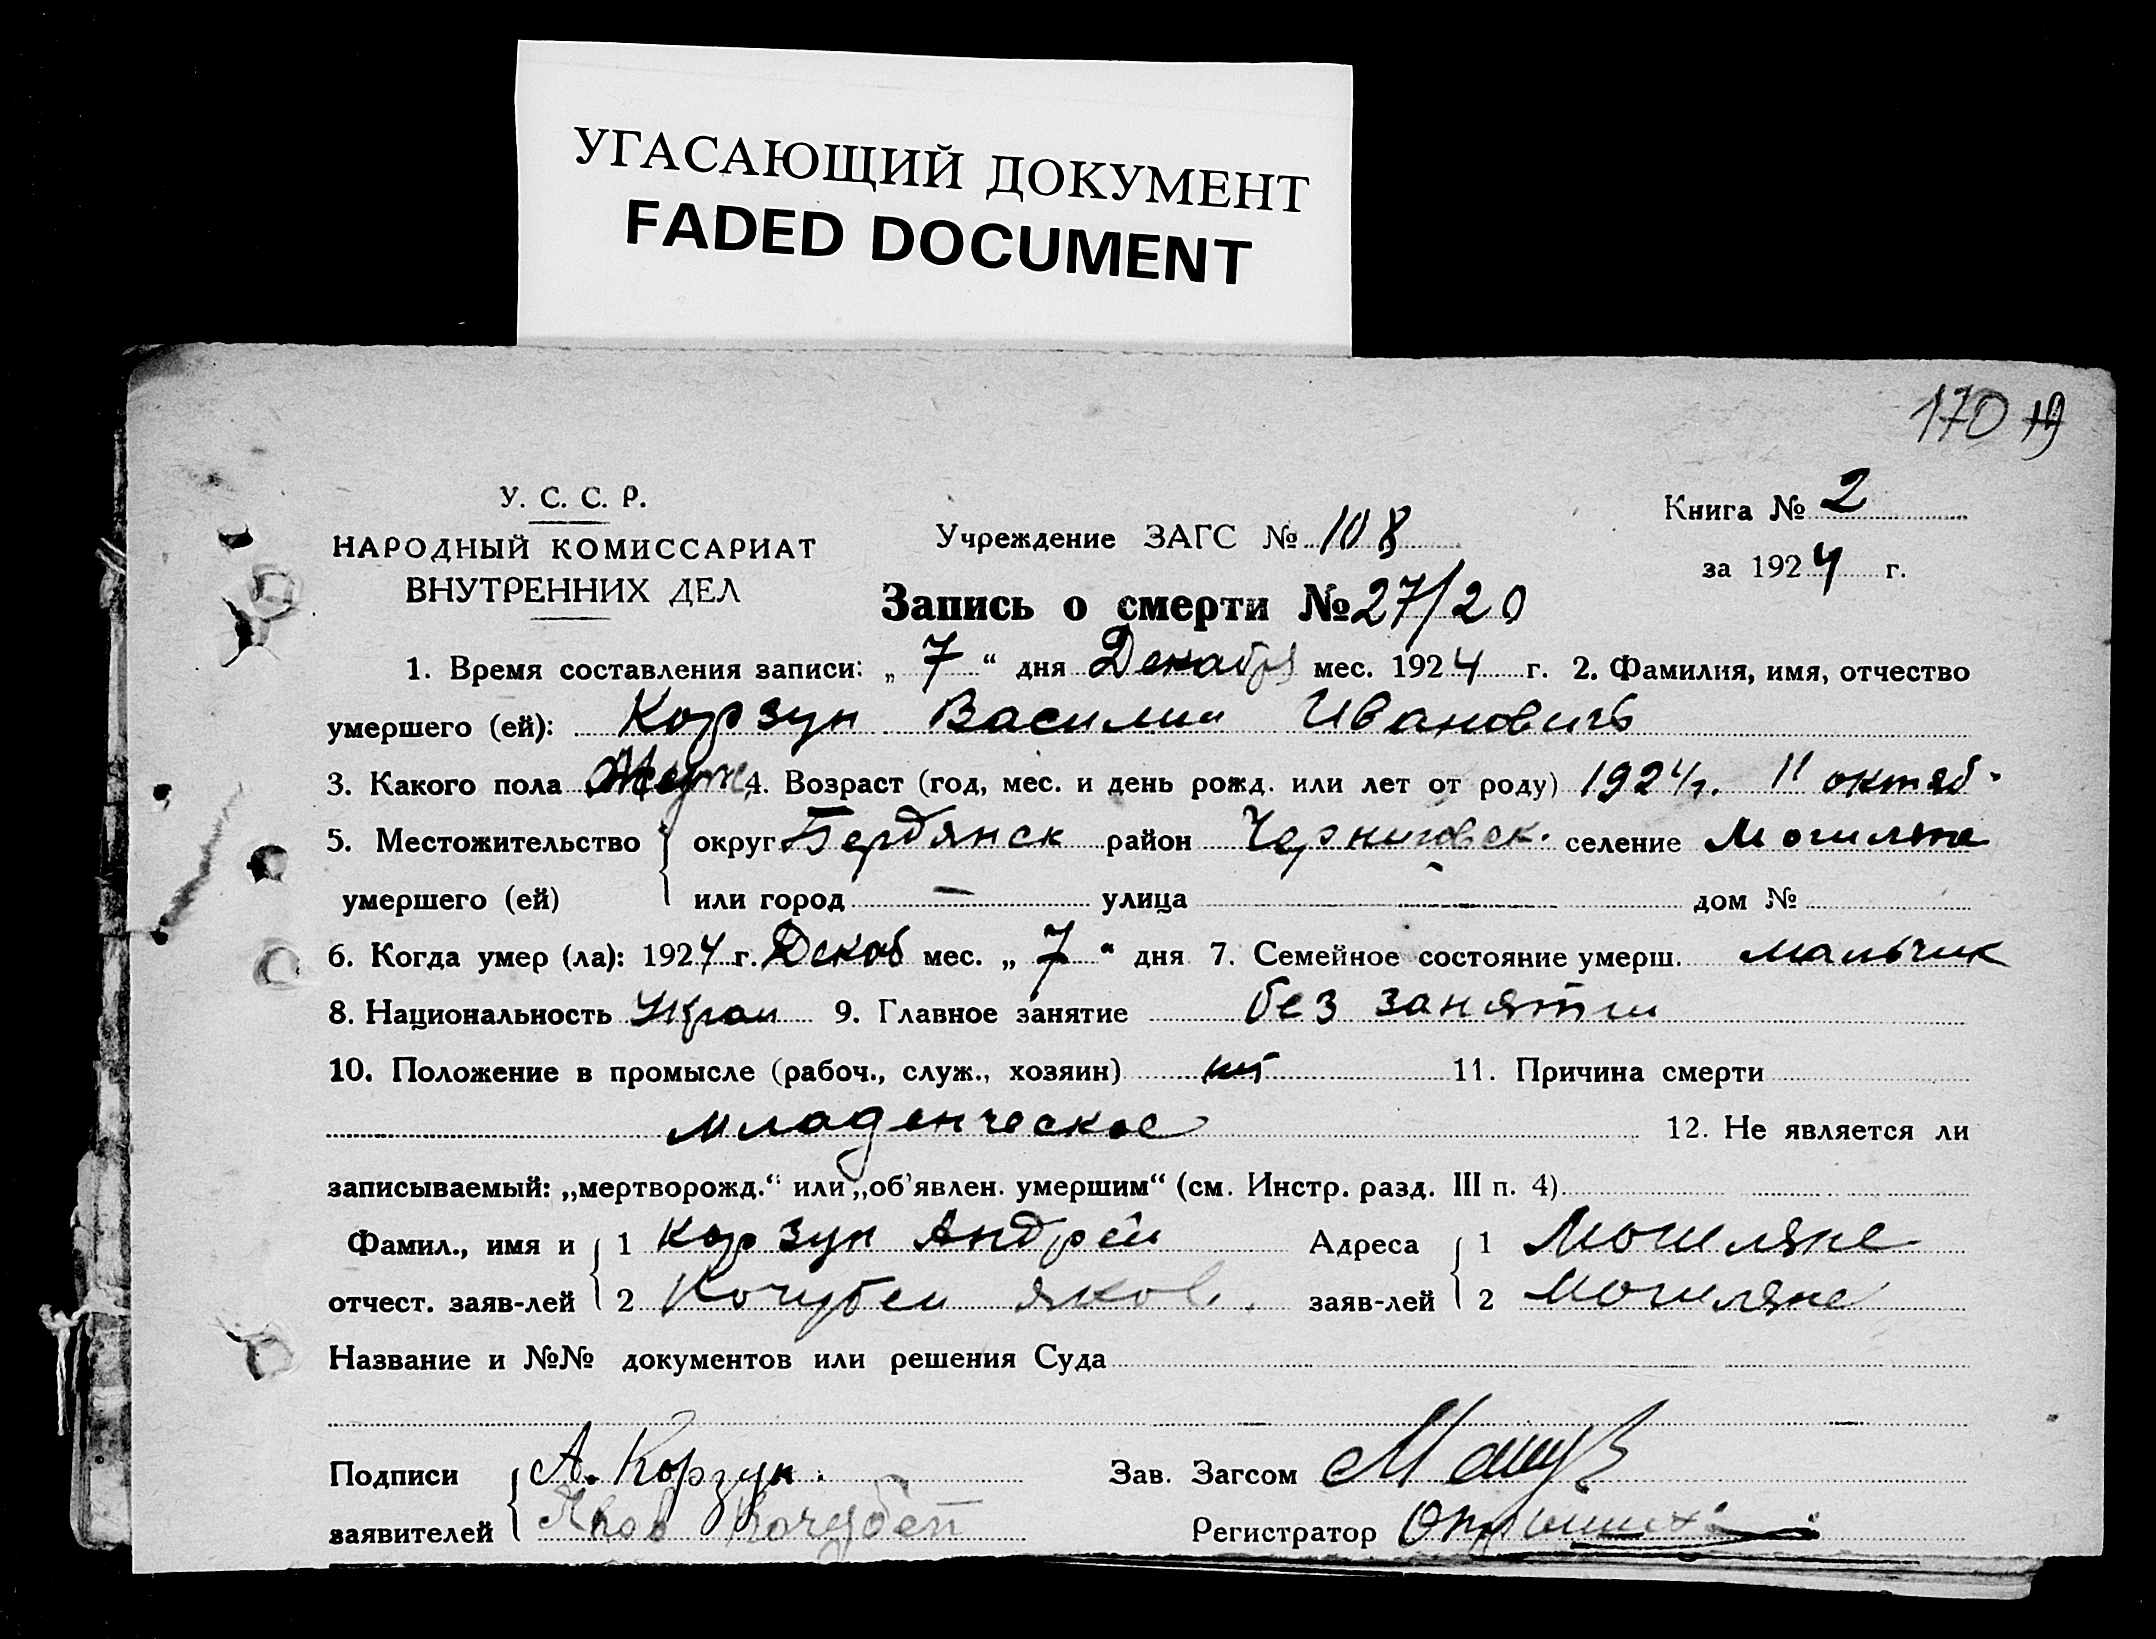 УГАСАЮЩИЙ ДОКУМЕНТ
FADED DOCUMENT
170 19
У. С. С. Р.
НАРОДНЫЙ КОМИССАРИАТ
ВНУТРЕННИХ ДЕЛ
Учреждение ЗАГС № 108
Книга № 2
за 1924 г.
Запись о смерти № 27/20
1. Время составления записи: „ 7 “ дня Декабря мес. 1924 г. 2. Фамилия, имя, отчество
умершего (ей): Корзун Василии Ивановичъ
3. Какого пола Муж 4. Возраст (год, мес. и день рожд. или лет от роду) 1924 г. 11 октяб.
5. Местожительство округ Бердянск район Черниговск. селение Могиляне
умершего (ей) или город — улица — дом №
6. Когда умер (ла): 1924 г. Декаб мес. „ 7 “ дня 7. Семейное состояние умерш. мальчик
8. Национальность Украи 9. Главное занятие без занятии
10. Положение в промысле (рабоч., служ., хозяин) 11. Причина смерти
младенческое 12. Не является ли
записываемый: „мертворожд.“ или „об'явлен. умершим“ (см. Инстр. разд. III п. 4)
Фамил., имя и 1 Корзун Андрей Адреса 1 Могиляне
отчест. заяв-лей 2 Кочубеи Яков. заяв-лей 2 Могиляне
Название и №№ документов или решения Суда
Подписи А. Корзун. Зав. Загсом
заявителей Яков Кочубей Регистратор